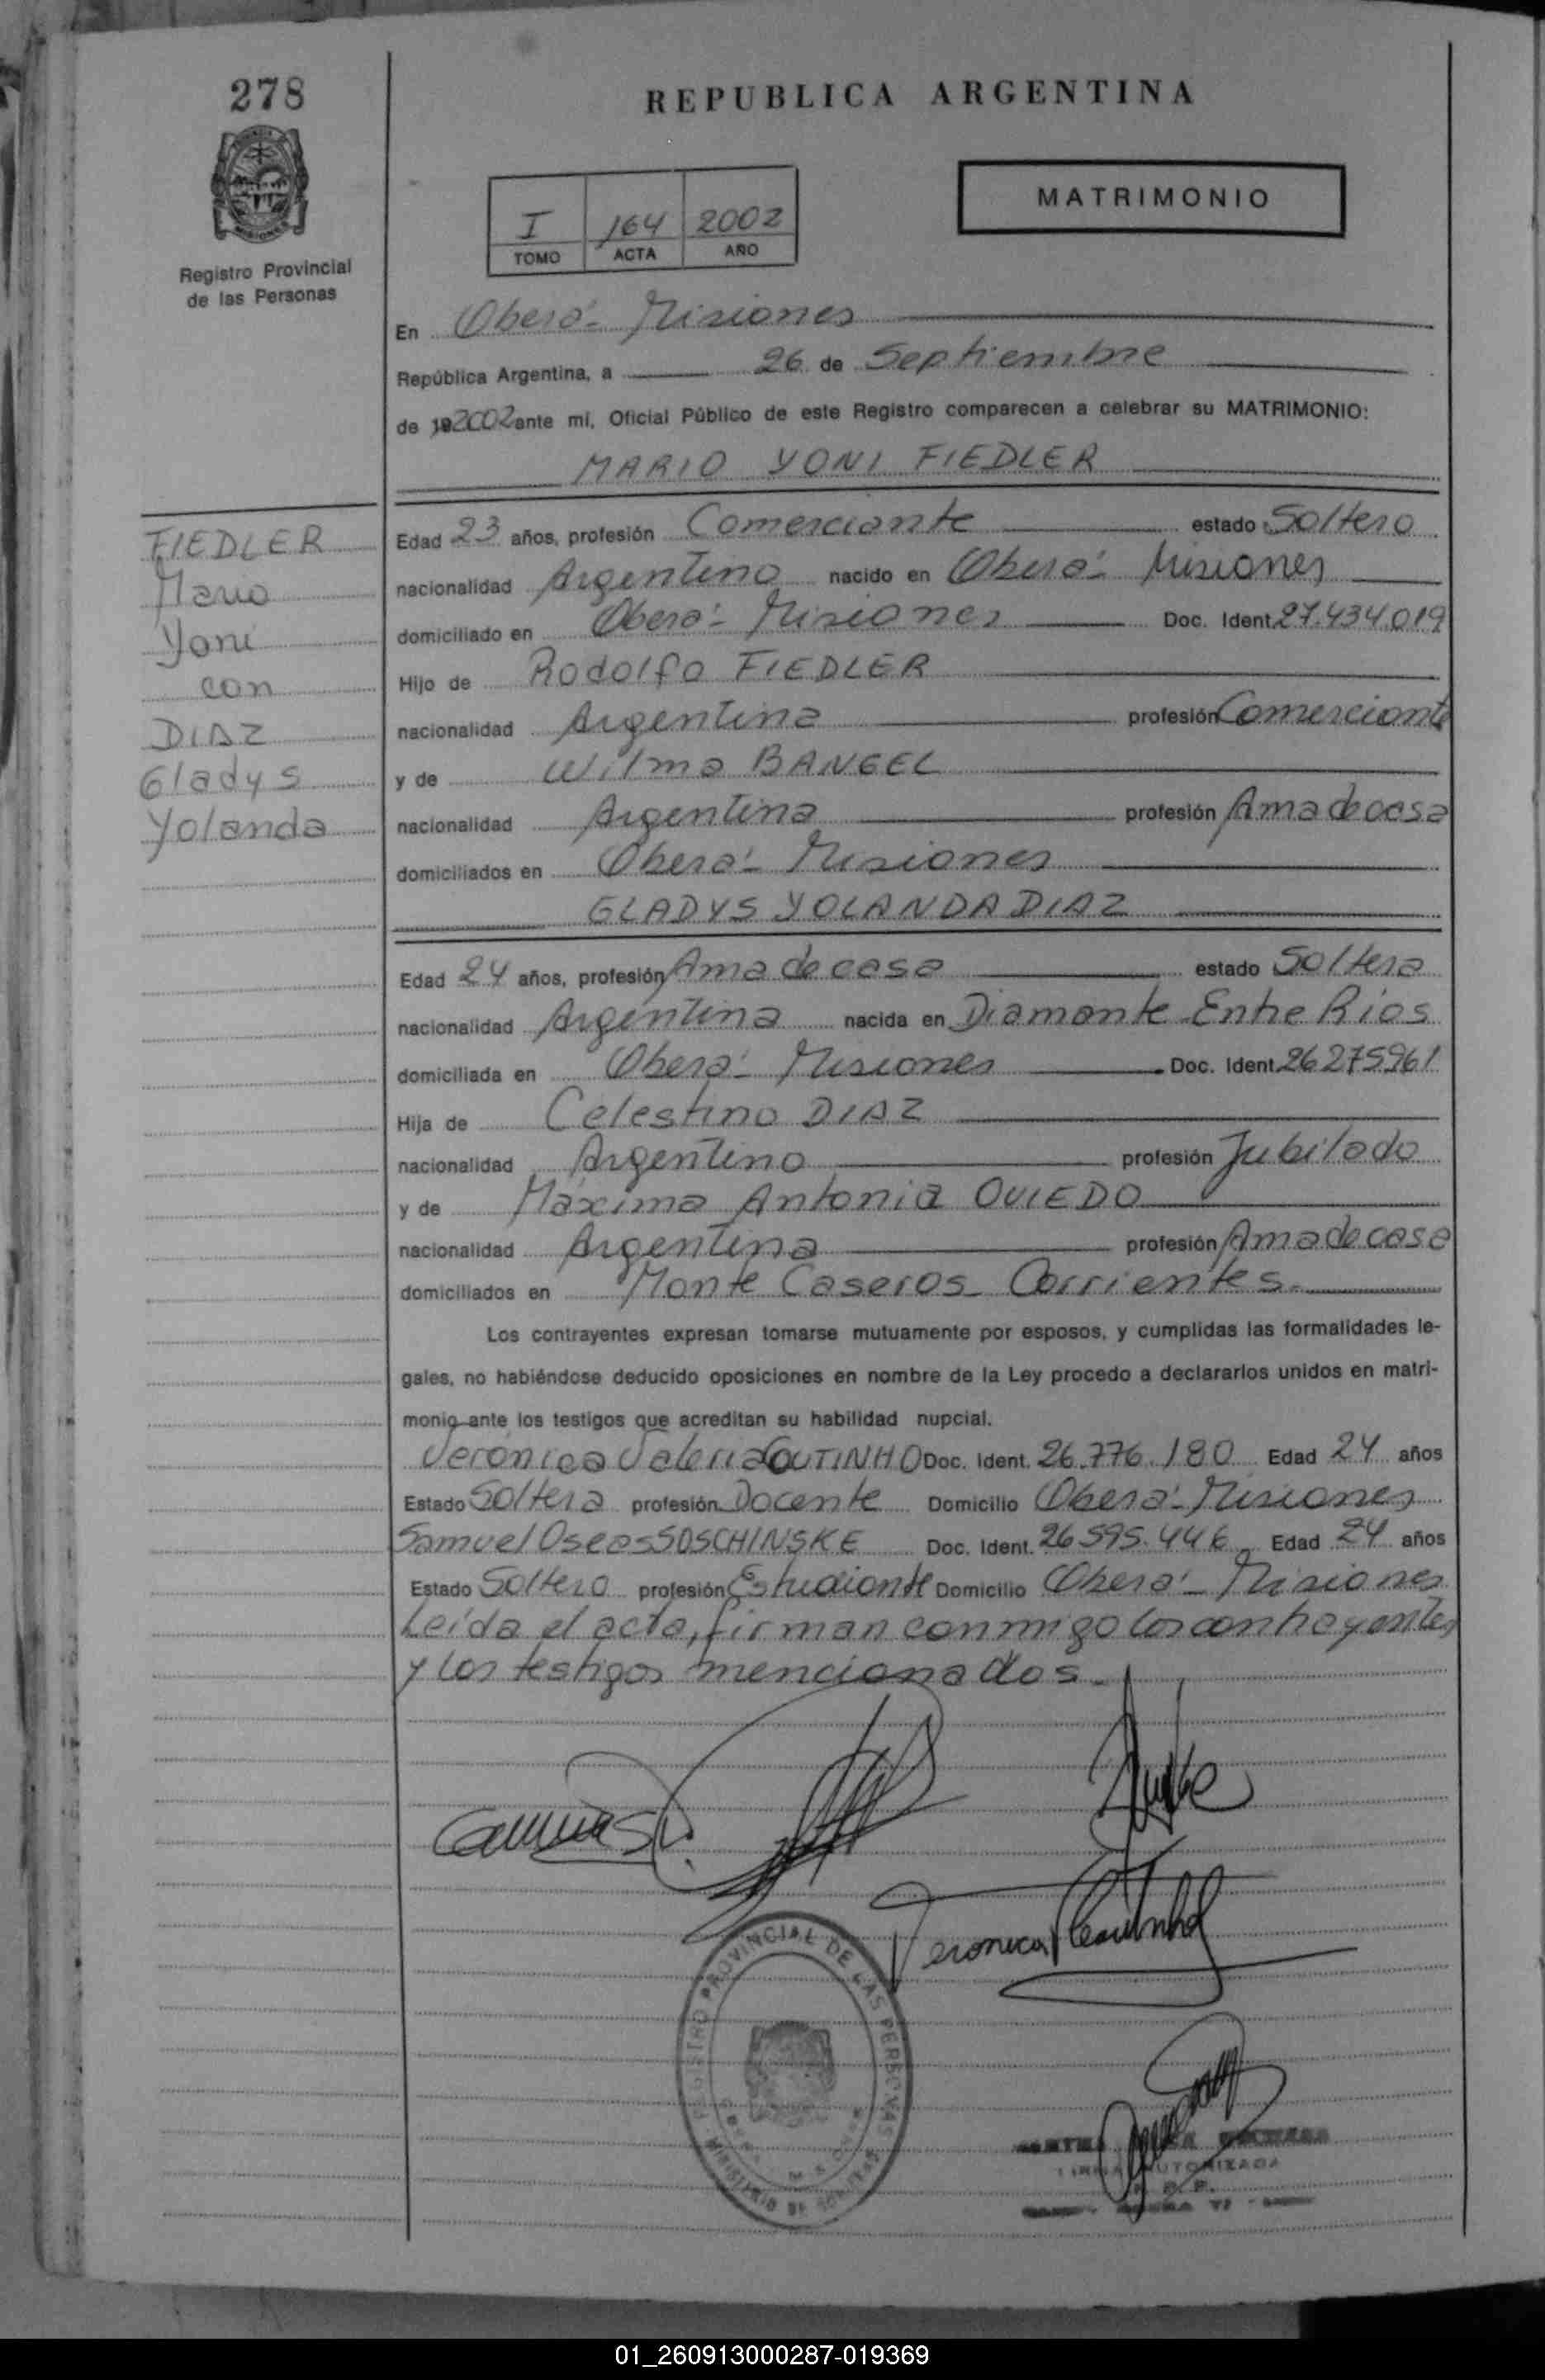 278
REPUBLICA ARGENTINA
MATRIMONIO
I 164 2002
TOMO ACTA AÑO
Registro Provincial
de las Personas
En Oberá - Misiones
República Argentina, a 26 de Septiembre
de 192002 ante mí, Oficial Público de este Registro comparecen a celebrar su MATRIMONIO:
MARIO YONI FIEDLER
FIEDLER
Mario
Yoni
con
DIAZ
Gladys
Yolanda
Edad 23 años, profesión Comerciante estado Soltero
nacionalidad Argentino nacido en Oberá - Misiones
domiciliado en Oberá - Misiones Doc. Ident. 27.434.019
Hijo de Rodolfo FIEDLER
nacionalidad Argentina profesión Comerciante
y de Wilma BANGEL
nacionalidad Argentina profesión Ama de casa
domiciliados en Oberá - Misiones
GLADYS YOLANDA DIAZ
Edad 24 años, profesión Ama de casa estado Soltera
nacionalidad Argentina nacida en Diamante Entre Rios
domiciliada en Oberá - Misiones Doc. Ident. 26275961
Hija de Celestino DIAZ
nacionalidad Argentino profesión Jubilado
y de Máxima Antonia OVIEDO
nacionalidad Argentina profesión Ama de casa
domiciliados en Monte Caseros - Corrientes.
Los contrayentes expresan tomarse mutuamente por esposos, y cumplidas las formalidades le-
gales, no habiéndose deducido oposiciones en nombre de la Ley procedo a declararlos unidos en matri-
monio ante los testigos que acreditan su habilidad nupcial.
Verónica Valeria COUTINHO Doc. Ident. 26.776.180 Edad 24 años
Estado Soltera profesión Docente Domicilio Oberá - Misiones
Samuel Oseas SOSCHINSKE Doc. Ident. 26.595.446 Edad 24 años
Estado Soltero profesión Estudiante Domicilio Oberá - Misiones
Leída el acta, firman conmigo los contrayentes
y los testigos mencionados.
Veronica
REGISTRO PROVINCIAL DE LAS PERSONAS
MINISTERIO DE
AUTORIZADA
01_260913000287-019369